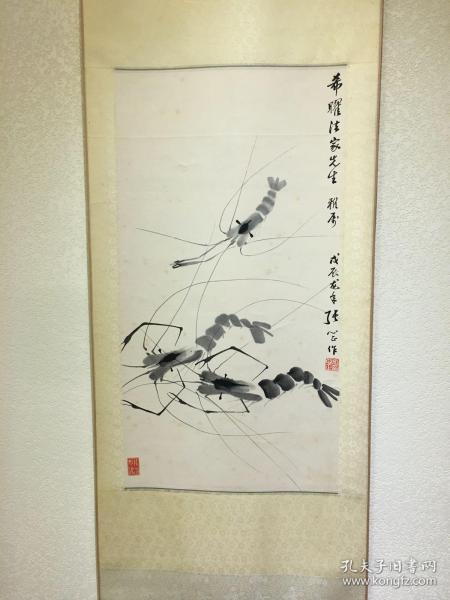 希耀法家先生 雅属
戊辰龙年 张
作
孔夫子旧书网
www.kongfz.com